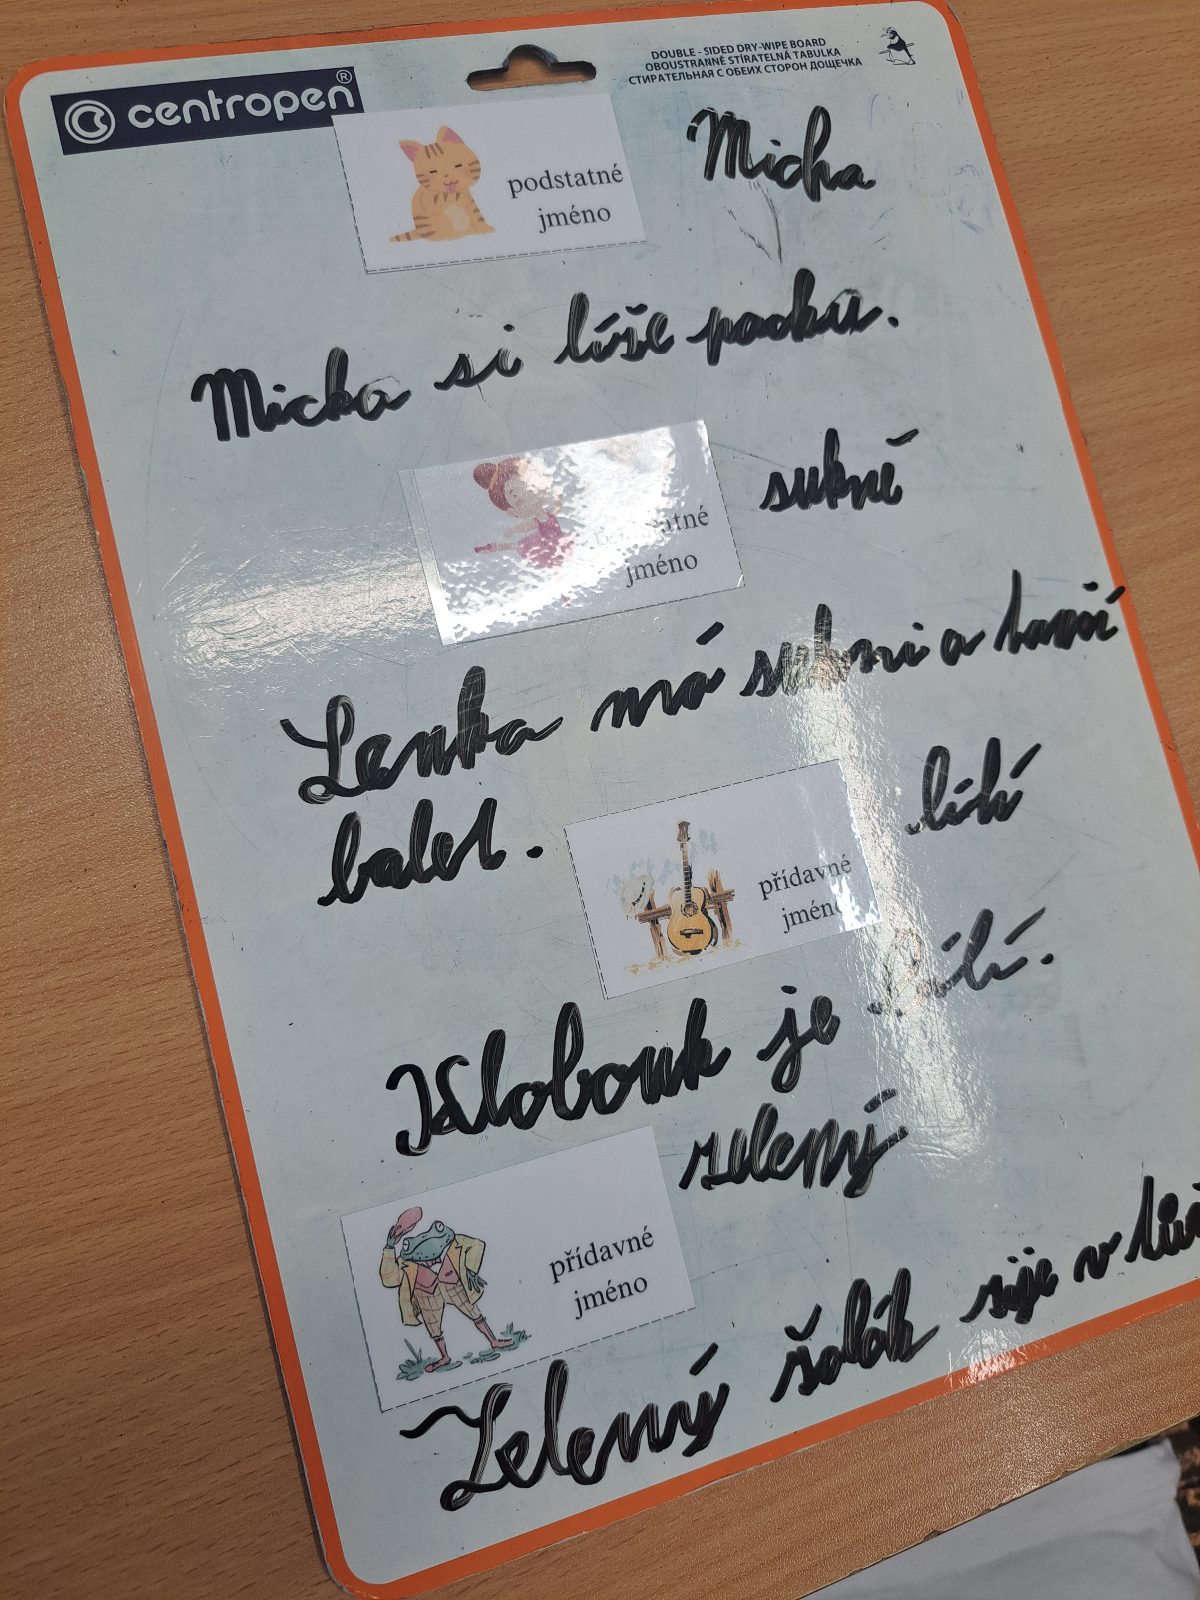 centropen®
DOUBLE - SIDED DRY-WIPE BOARD
OBOUSTRANNĚ STÍRATELNÁ TABULKA
СТИРАТЕЛЬНАЯ С ОБЕИХ СТОРОН ДОЩЕЧКА
podstatné
jméno
Micka
Micka si líže packu.
jméno
sukně
Lenka má sukni a tančí
balet.
přídavné
jméno
bílí
Klobouk je bílí.
zelený
přídavné
jméno
Zelený žabák žije v